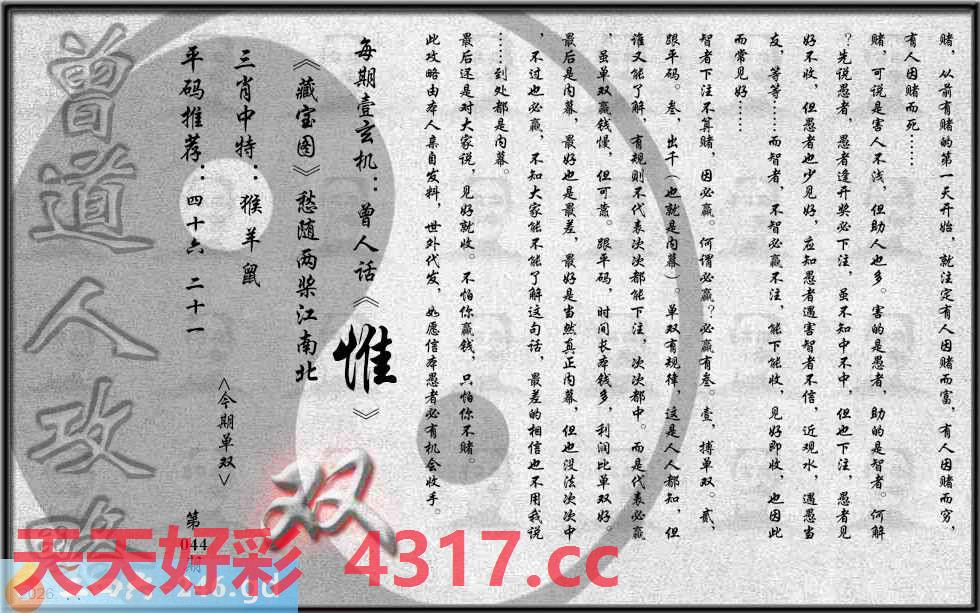 赌，从前有赌的第一天开始，就注定有人因赌而富，有人因赌而穷，
有人因赌而死……
赌，可说是害人不浅，但助人也多。害的是愚者，助的是智者。何解
？先说愚者，愚者逢开奖必下注，虽不知中不中，但也下注，愚者见
好不收，但愚者也少见好，应知愚者遇害智者不信，近观水，遇愚当
友，等等……而智者，不智必赢不注，能下能收，见好即收，也因此
而常见好……
智者下注不算赌，因必赢。何谓必赢？必赢有叁。壹，搏单双。贰，
跟平码。叁，出千（也就是内幕）。单双有规律，这是人人都知，但
谁又能了解，有规则不代表次次都能下注，次次都中。而是代表必赢
，虽单双赢钱慢，但可靠。跟平码，时间长本钱多，利润比单双好。
最后是内幕，最好也是最差，最好是当然真正内幕，但也没法次次中
，不过也必赢，不知大家能不能了解这句话，最差的相信也不用我说
……到处都是内幕。
最后还是对大家说，见好就收。不怕你赢钱，只怕你不赌。
此攻略由本人亲自发料，世外代发，如愿信本愚者必有机会收手。
每期壹玄机：曾人话《惟》
《藏宝图》愁随两桨江南北
三肖中特：猴羊鼠
平码推荐：四十六 二十一
<今期单双>
双
第
044
期
曾道人攻略
天天好彩 4317.cc
246.gd
2026